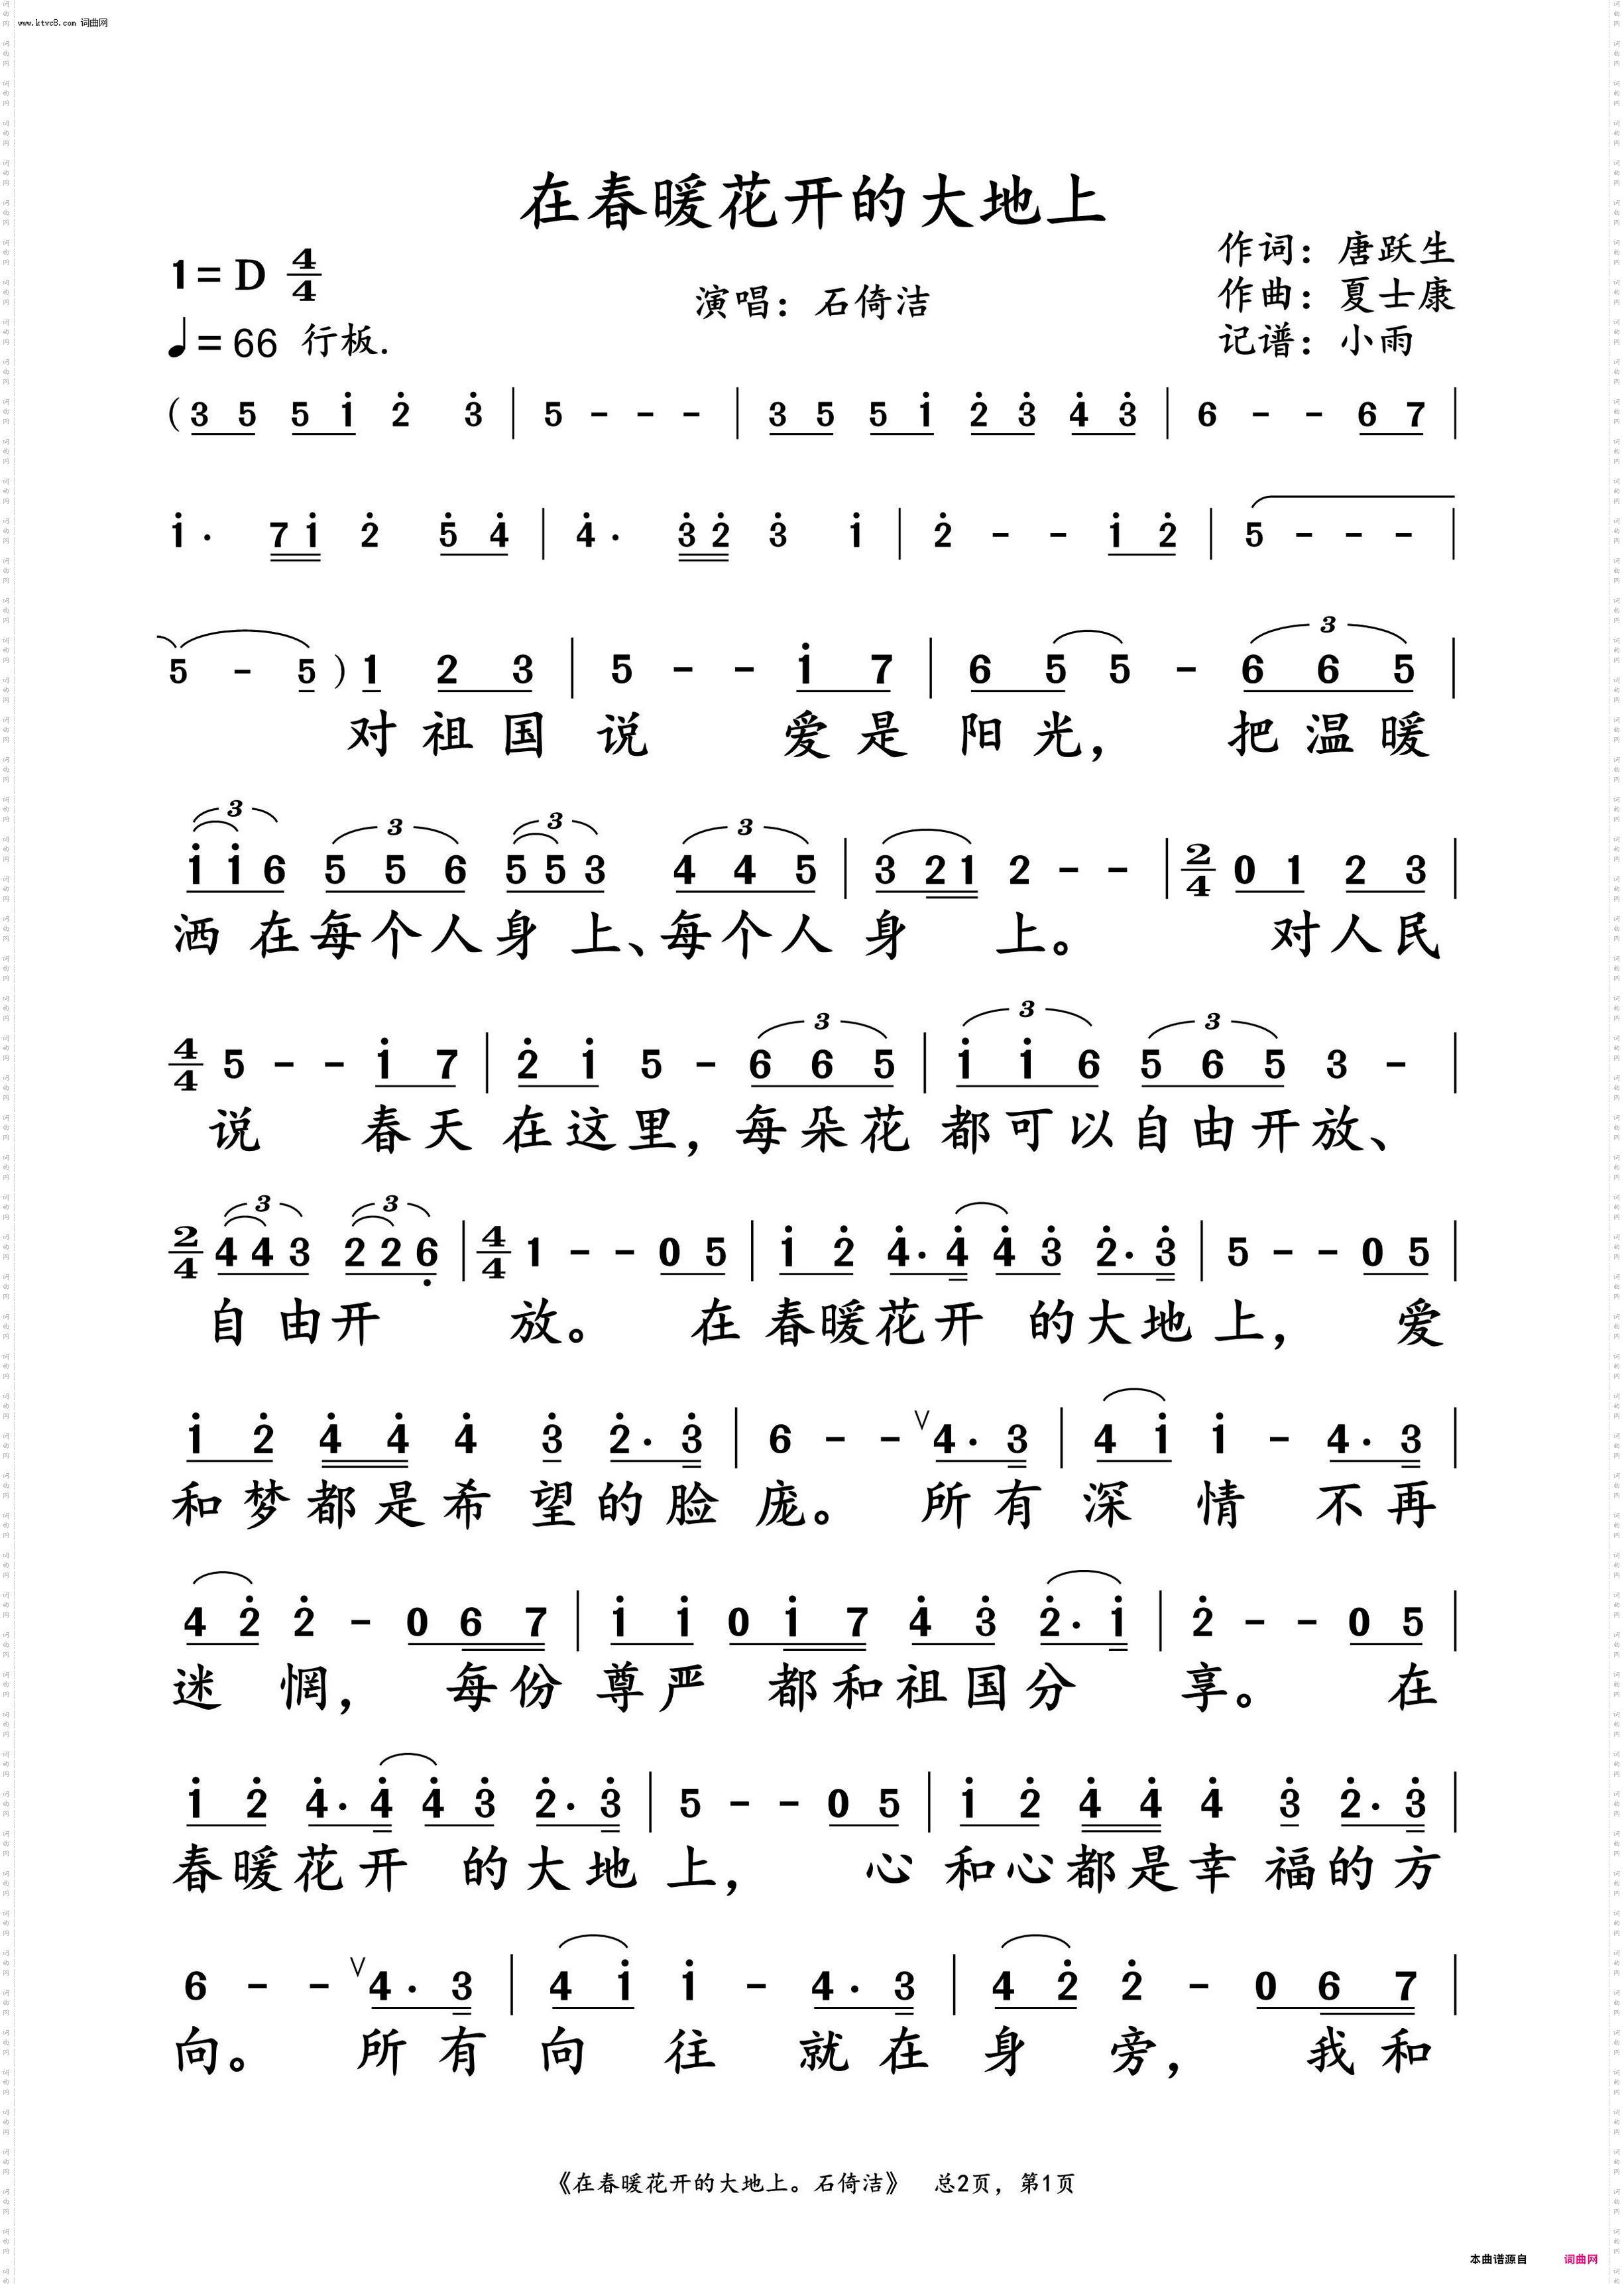 www.ktvc8.com 词曲网
在春暖花开的大地上
1= D 4/4
♩= 66 行板.
演唱：石倚洁
作词：唐跃生
作曲：夏士康
记谱：小雨
( 3 5 5 i̇ 2̇ 3̇ | 5 - - - | 3 5 5 i̇ 2̇ 3̇ 4̇ 3̇ | 6 - - 6 7 |
i̇ · 7 i̇ 2̇ 5̇ 4̇ | 4̇ · 3̇ 2̇ 3̇ i̇ | 2̇ - - i̇ 2̇ | 5 - - - |
5 - 5 ) 1 2 3 | 5 - - i̇ 7 | 6 5 5 - 6 6 5 |
对祖国说 爱是阳光， 把温暖
i̇ i̇ 6 5 5 6 5 5 3 4 4 5 | 3 2 1 2 - - | 2/4 0 1 2 3 |
洒在每个人身上、每个人身上。 对人民
4/4 5 - - i̇ 7 | 2̇ i̇ 5 - 6 6 5 | i̇ i̇ 6 5 6 5 3 - |
说 春天在这里，每朵花都可以自由开放、
2/4 4 4 3 2 2 6̣ | 4/4 1 - - 0 5 | i̇ 2̇ 4̇ · 4̇ 4̇ 3̇ 2̇ · 3̇ | 5 - - 0 5 |
自由开放。 在春暖花开的大地上， 爱
i̇ 2̇ 4̇ 4̇ 4̇ 3̇ 2̇ · 3̇ | 6 - - ∨ 4 · 3 | 4 i̇ i̇ - 4 · 3 |
和梦都是希望的脸庞。 所有深情不再
4 2̇ 2̇ - 0 6 7 | i̇ i̇ 0 i̇ 7 4̇ 3̇ 2̇ · i̇ | 2̇ - - 0 5 |
迷惘， 每份尊严都和祖国分享。 在
i̇ 2̇ 4̇ · 4̇ 4̇ 3̇ 2̇ · 3̇ | 5 - - 0 5 | i̇ 2̇ 4̇ 4̇ 4̇ 3̇ 2̇ · 3̇ |
春暖花开的大地上， 心和心都是幸福的方
6 - - ∨ 4 · 3 | 4 i̇ i̇ - 4 · 3 | 4 2̇ 2̇ - 0 6 7 |
向。 所有向往就在身旁， 我和
《在春暖花开的大地上。石倚洁》 总2页，第1页
本曲谱源自 词曲网